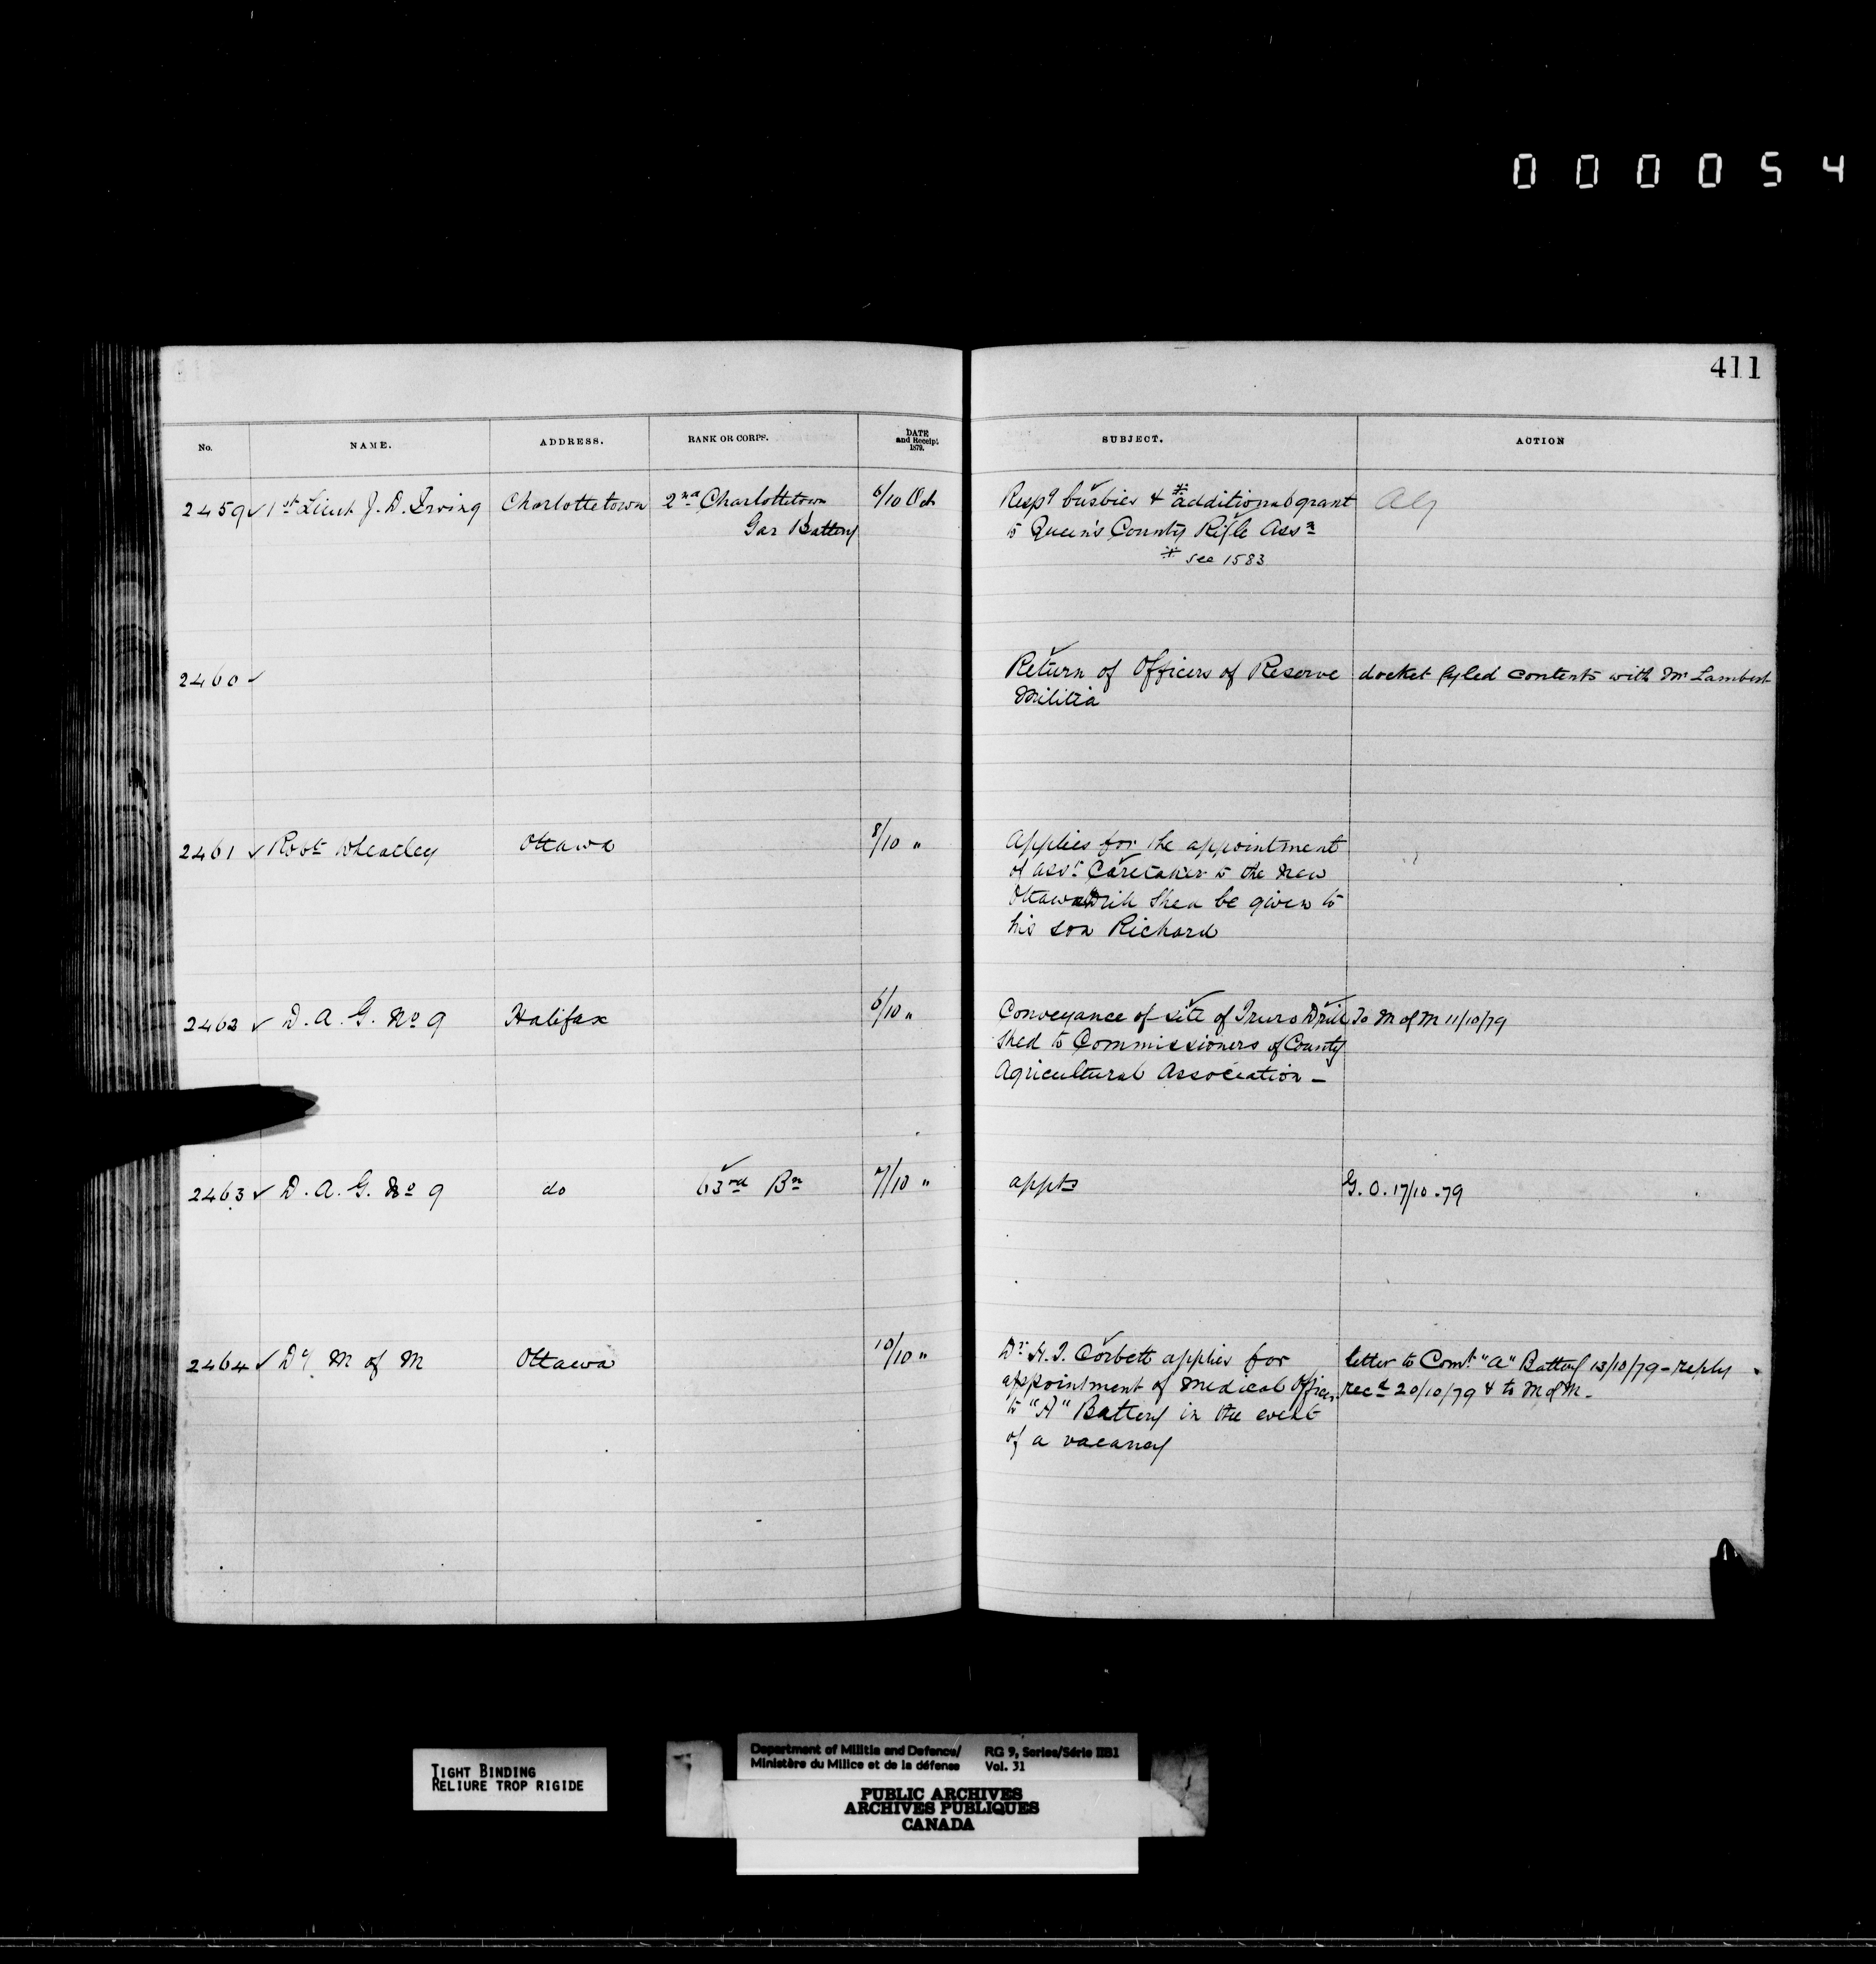 000054
411
No. NAME. ADDRESS. RANK OR CORPS. DATE and Receipt 1879. SUBJECT. ACTION
2459 ✓ 1st Lieut J. D. Irving Charlottetown 2nd Charlottetown 6/10 Oct Respg busbies & * additional grant
Gar Battery to Queen's County Rifle Assn
* see 1583
2460 ✓ Return of Officers of Reserve docket fyled contents with Mr Lambert
Militia
2461 ✓ Robt Wheatley Ottawa 8/10 " Applies for the appointment
of asst Caretaker to the new
Ottawa Drill Shed be given to
his son Richard
2462 ✓ D. A. G. No 9 Halifax 6/10 " Conveyance of site of Truro Drill To M of M 11/10/79
Shed to Commissioners of County
Agricultural Association -
2463 ✓ D. A. G. No 9 do 63rd Bn 7/10 " appts G. O. 17/10-79
2464 ✓ Dy M of M Ottawa 10/10 " Dr H. J. Corbett applies for letter to Comt "A" Battery 13/10/79 - reply
appointment of Medical Officer recd 20/10/79 & to M of M -
to "A" Battery in the event
of a vacancy
TIGHT BINDING
RELIURE TROP RIGIDE
Department of Militia and Defence/ RG 9, Series/Série IIB1
Ministère du Milice et de la défense Vol. 31
PUBLIC ARCHIVES
ARCHIVES PUBLIQUES
CANADA